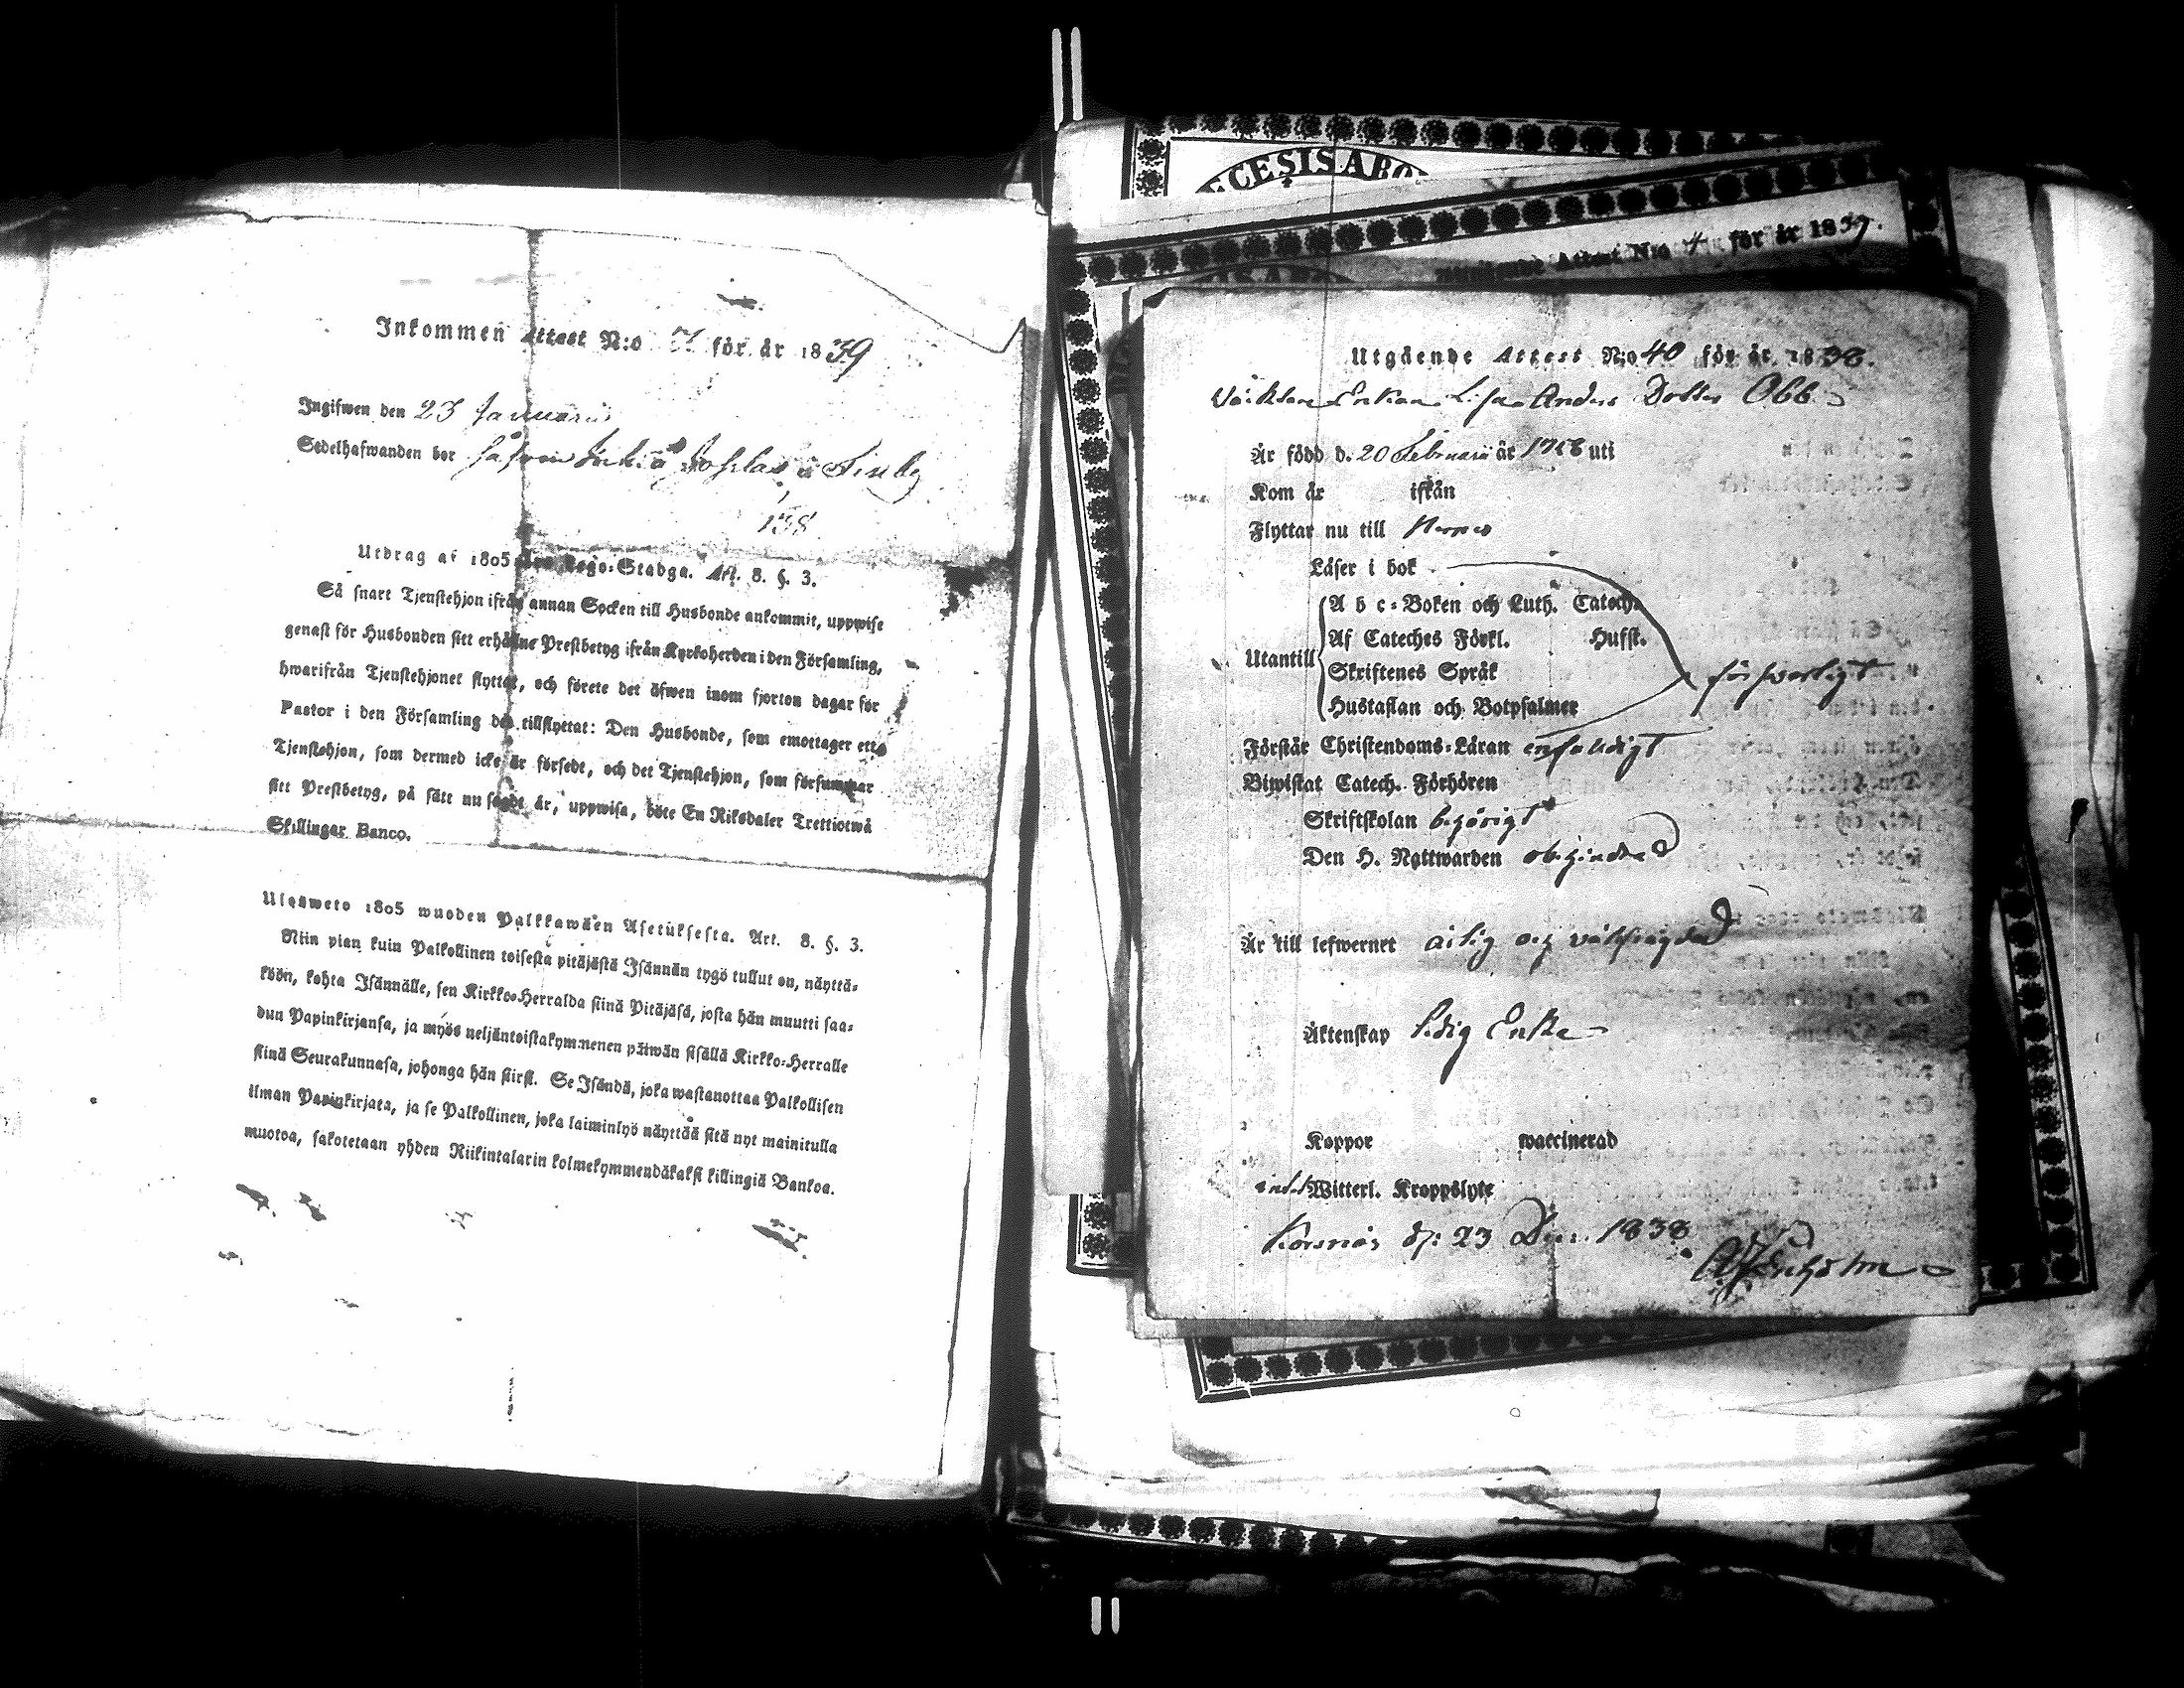 Inkommen Attest N:o 7 för år 1839
Ingifwen den 23 Januarii
Sedelhafwanden bor såsom Inhis
158
Utdrag af 1805 Lego-Stadga. Art. 8. §. 3.
Så snart Tjenstehjon ifrån annan Socken till Husbonde ankommit, uppwise
genast för Husbonden sitt erhållne Prestbetyg ifrån Kyrkoherden i den Församling,
hwarifrån Tjenstehjonet flyttat, och förete det äfwen inom fjorton dagar för
Pastor i den Församling det tillflyttat: Den Husbonde, som emottager ett
Tjenstehjon, som dermed icke är försedt, och det Tjenstehjon, som försummar
sitt Prestbetyg, på sätt nu sagdt är, uppwisa, böte En Riksdaler Trettiotwå
Skillingar Banco.
Ulosweto 1805 wuoden Palkkawäen Asetuksesta. Art. 8. §. 3.
Niin pian kuin Palkollinen toisesta pitäjästä Isännän tygö tullut on, näyttä-
köön, kohta Isännälle, sen Kirkko-Herralda siinä Pitäjäsä, josta hän muutti saa-
dun Papinkirjansa, ja myös neljäntoistakymmenen päiwän sisällä Kirkko-Herralle
siinä Seurakunnasa, johonga hän siirsi. Se Isändä, joka wastanottaa Palkollisen
ilman Papinkirjata, ja se Palkollinen, joka laiminlyö näyttää sitä nyt mainitulla
muotoa, sakotetaan yhden Riikintalarin kolmekymmendäkaksi killingiä Bankoa.
ECESIS ABO
Attest N:o 4 för år 1839.
Utgående Attest N:o 40 för år 1838.
Enkan Lisa Anders Dotter Obb
Är född d. 20 Februarii år 1768 uti
Kom år ifrån
Flyttar nu till Närpes
Läser i bok
A b c-Boken och Luth. Catech.
Af Cateches Förkl. Husst.
Utantill
Skriftenes Språk
försvarligt
Hustaflan och Botpsalmer
Förstår Christendoms-Läran enfaldigt
Biwistat Catech. Förhören
Skriftskolan behörigt
Den H. Nattwarden obehindrad
Är till lefwernet ärlig och välfrägdad
Äktenskap ledig Enka
Koppor waccinerad
intet Witterl. Kroppslyte
Korsnäs d: 23 Dec: 1838